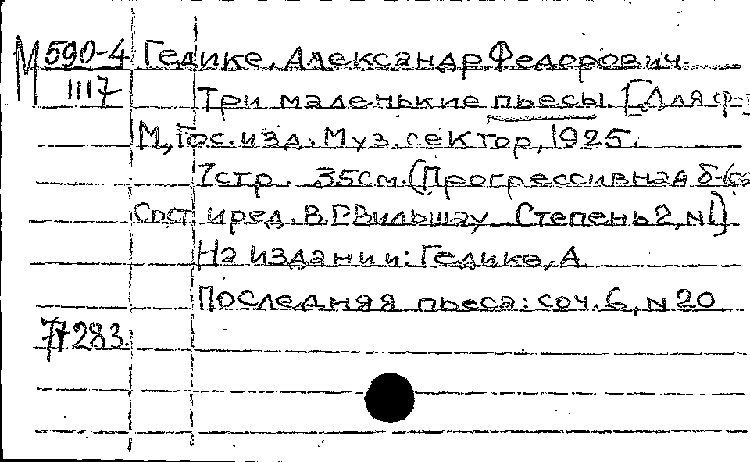 М 590-4 Гедике, Александр Федорович.
1117 Три маленькие пьесы. [Для ф-
М, Гос. изд. Муз. сектор, 1925.
7стр. 35см. (Прогрессивная б-ка
Сост. и ред. В.Р.Вильшау Степень 2, N1)
На издании: Гедике, А
Последняя пьеса: соч. 6, N 20
77283